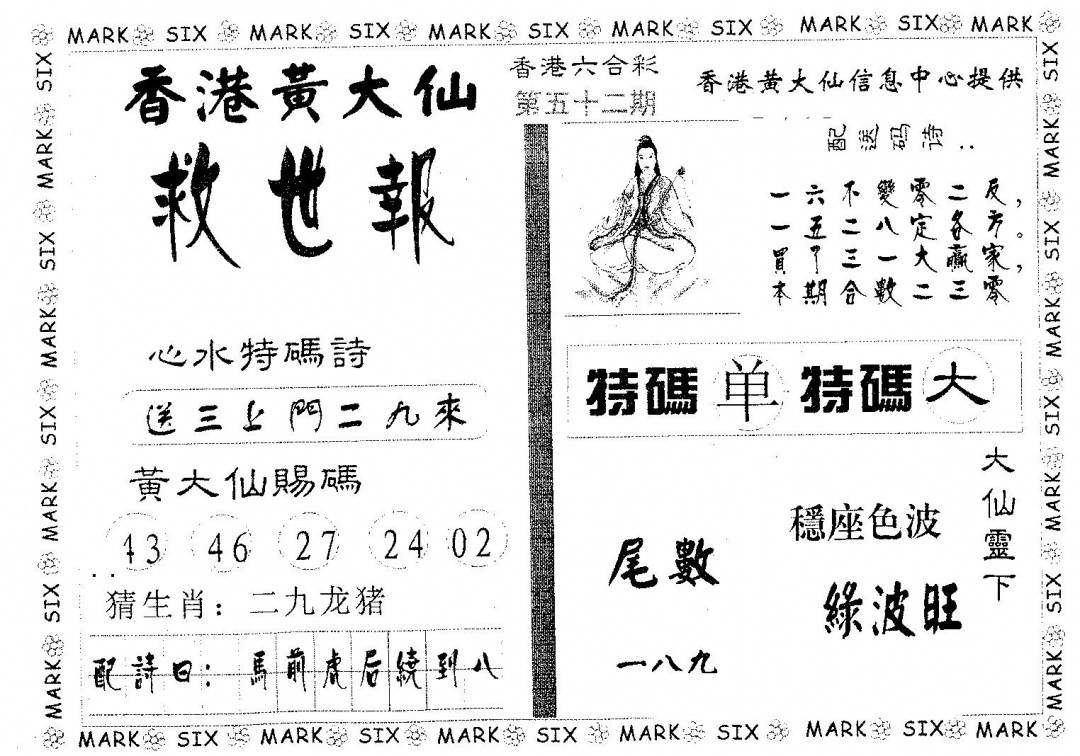 MARK SIX MARK SIX MARK SIX MARK SIX MARK SIX MARK
香港黃大仙
救世報
香港六合彩
第五十二期
香港黃大仙信息中心提供
配送码诗：
一六不變零二反，
一五二八定各方。
買了三一大贏家，
本期合數二三零
心水特碼詩
送三上門二九來
黃大仙賜碼
43 46 27 24 02
猜生肖：二九龙猪
配詩曰：馬前虎后繞到八
特碼 单 特碼 大
大仙靈下
穩座色波
綠波旺
尾數
一八九
MARK SIX MARK SIX MARK SIX MARK SIX MARK SIX MARK
SIX MARK SIX MARK SIX MARK SIX MARK
SIX MARK SIX MARK SIX MARK SIX MARK